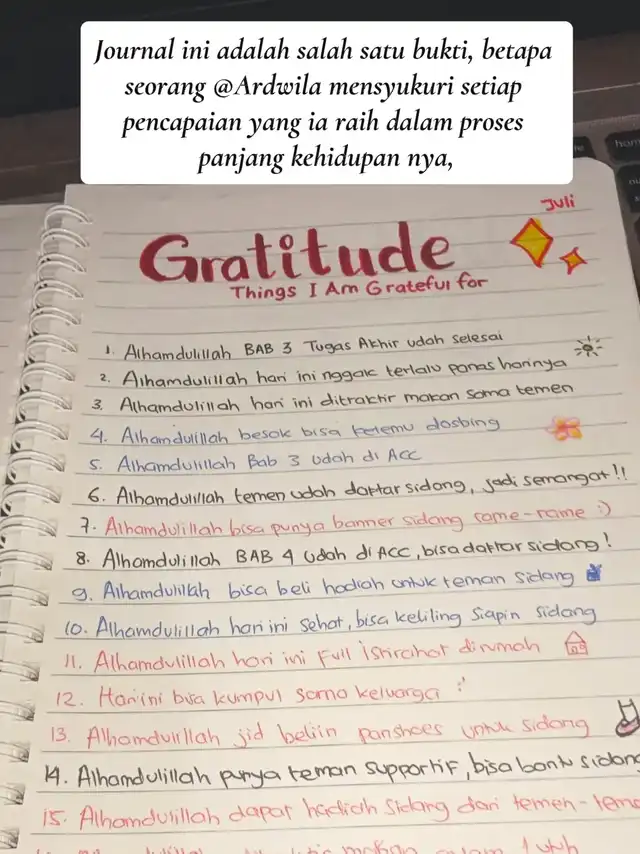 Journal ini adalah salah satu bukti, betapa
seorang @Ardwila mensyukuri setiap
pencapaian yang ia raih dalam proses
panjang kehidupan nya,
Juli
Gratitude
Things I Am Grateful for
1. Alhamdulillah BAB 3 Tugas Akhir udah selesai
2. Alhamdulillah hari ini nggak terlalu panas harinya
3. Alhamdulillah hari ini ditraktir makan sama temen
4. Alhamdulillah besok bisa ketemu dosbing
5. Alhamdulillah Bab 3 udah di ACC
6. Alhamdulillah temen udah daftar sidang, jadi semangat!!
7. Alhamdulillah bisa punya banner sidang rame-rame :)
8. Alhamdulillah BAB 4 udah di ACC, bisa daftar sidang!
9. Alhamdulillah bisa beli hadiah untuk teman sidang
10. Alhamdulillah hari ini sehat, bisa keliling siapin sidang
11. Alhamdulillah hari ini full istirahat dirumah
12. Hari ini bisa kumpul sama keluarga
13. Alhamdulillah jid beliin panshoes untuk sidang
14. Alhamdulillah punya teman supportif, bisa bantu sidang
15. Alhamdulillah dapat hadiah sidang dari temen-teme
makan